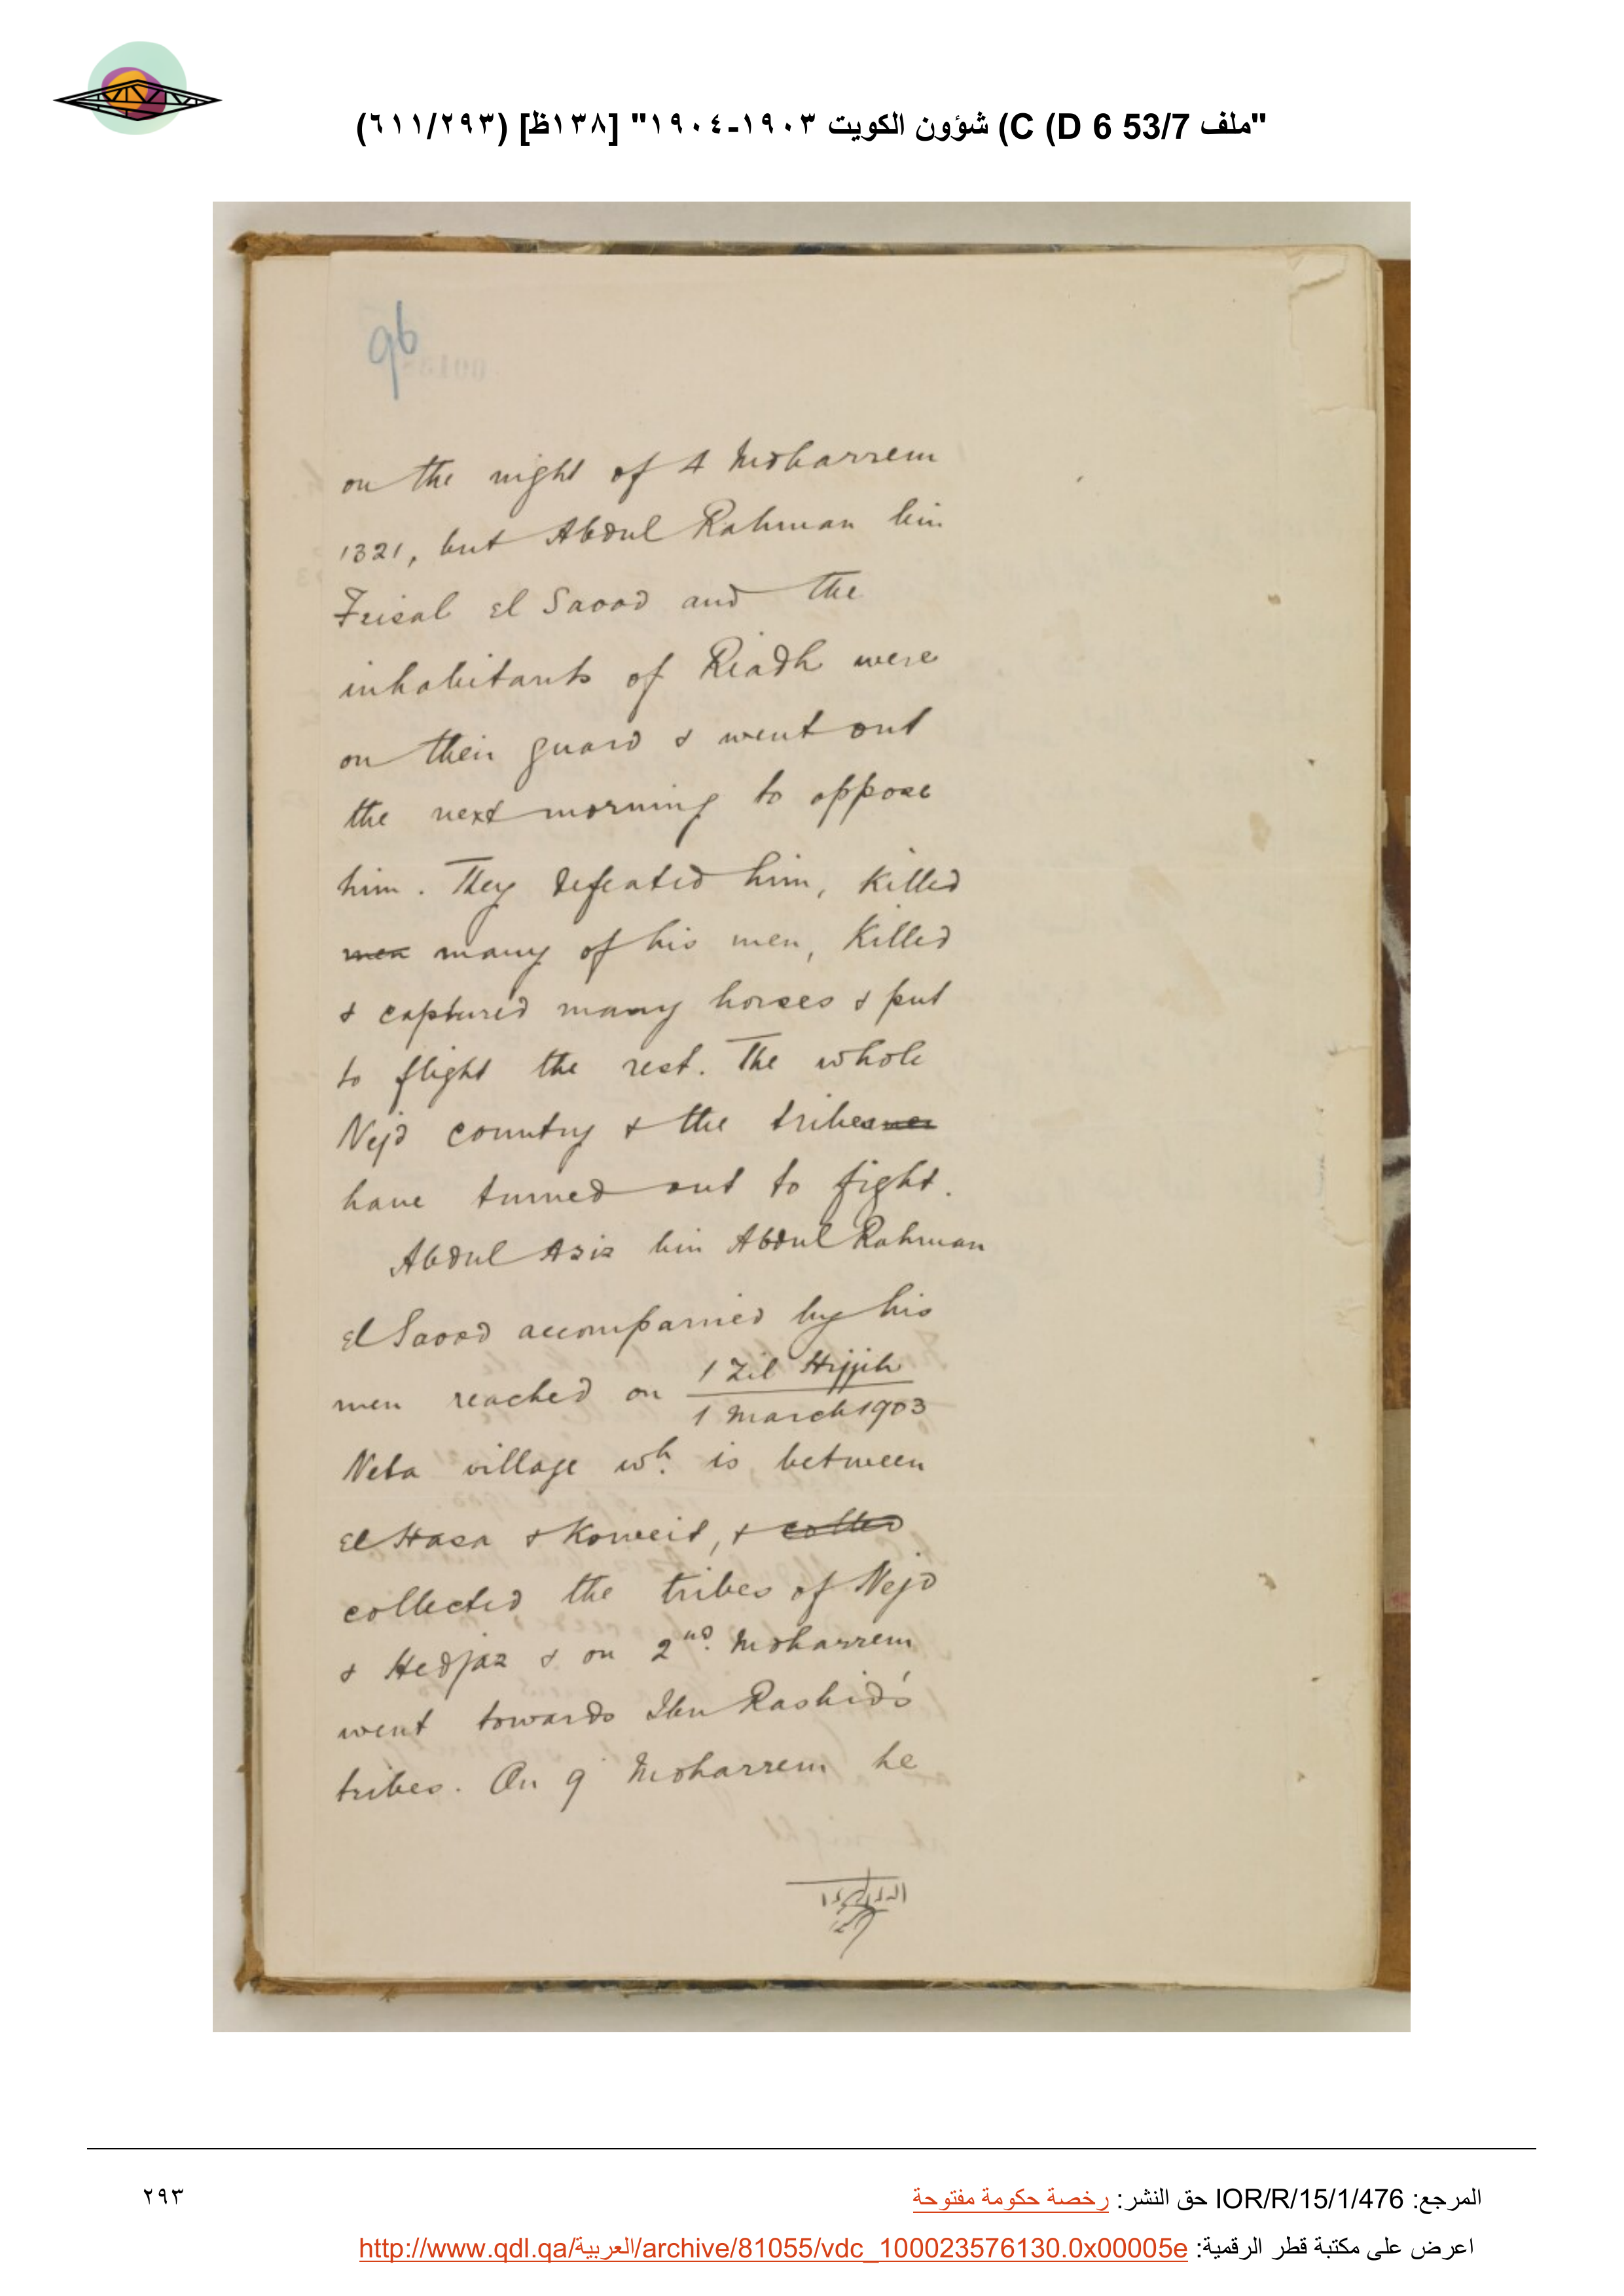 "ملف 53/7 D 6) C) شؤون الكويت ١٩٠٣-١٩٠٤" [١٣٨ظ] (٦١١/٢٩٣)
96
on the night of 4 Moharrem
1321, but Abdul Rahman bin
Feisal El Saood and the
inhabitants of Riadh were
on their guard & went out
the next morning to oppose
him. They defeated him, killed
men many of his men, killed
& captured many horses & put
to flight the rest. The whole
Nejd country & the tribesmen
have turned out to fight.
Abdul Aziz bin Abdul Rahman
El Saood accompanied by his
men reached on 1 Zil Hijjih
1 March 1903
Neta village wh. is between
El Hasa & Koweit, &
collected the tribes of Nejd
& Hedjaz & on 2nd. Moharrem
went towards Ibn Rashid's
tribes. On 9 Moharrem he
المرجع: IOR/R/15/1/476 حق النشر: رخصة حكومة مفتوحة
٢٩٣
اعرض على مكتبة قطر الرقمية: http://www.qdl.qa/العربية/archive/81055/vdc_100023576130.0x00005e